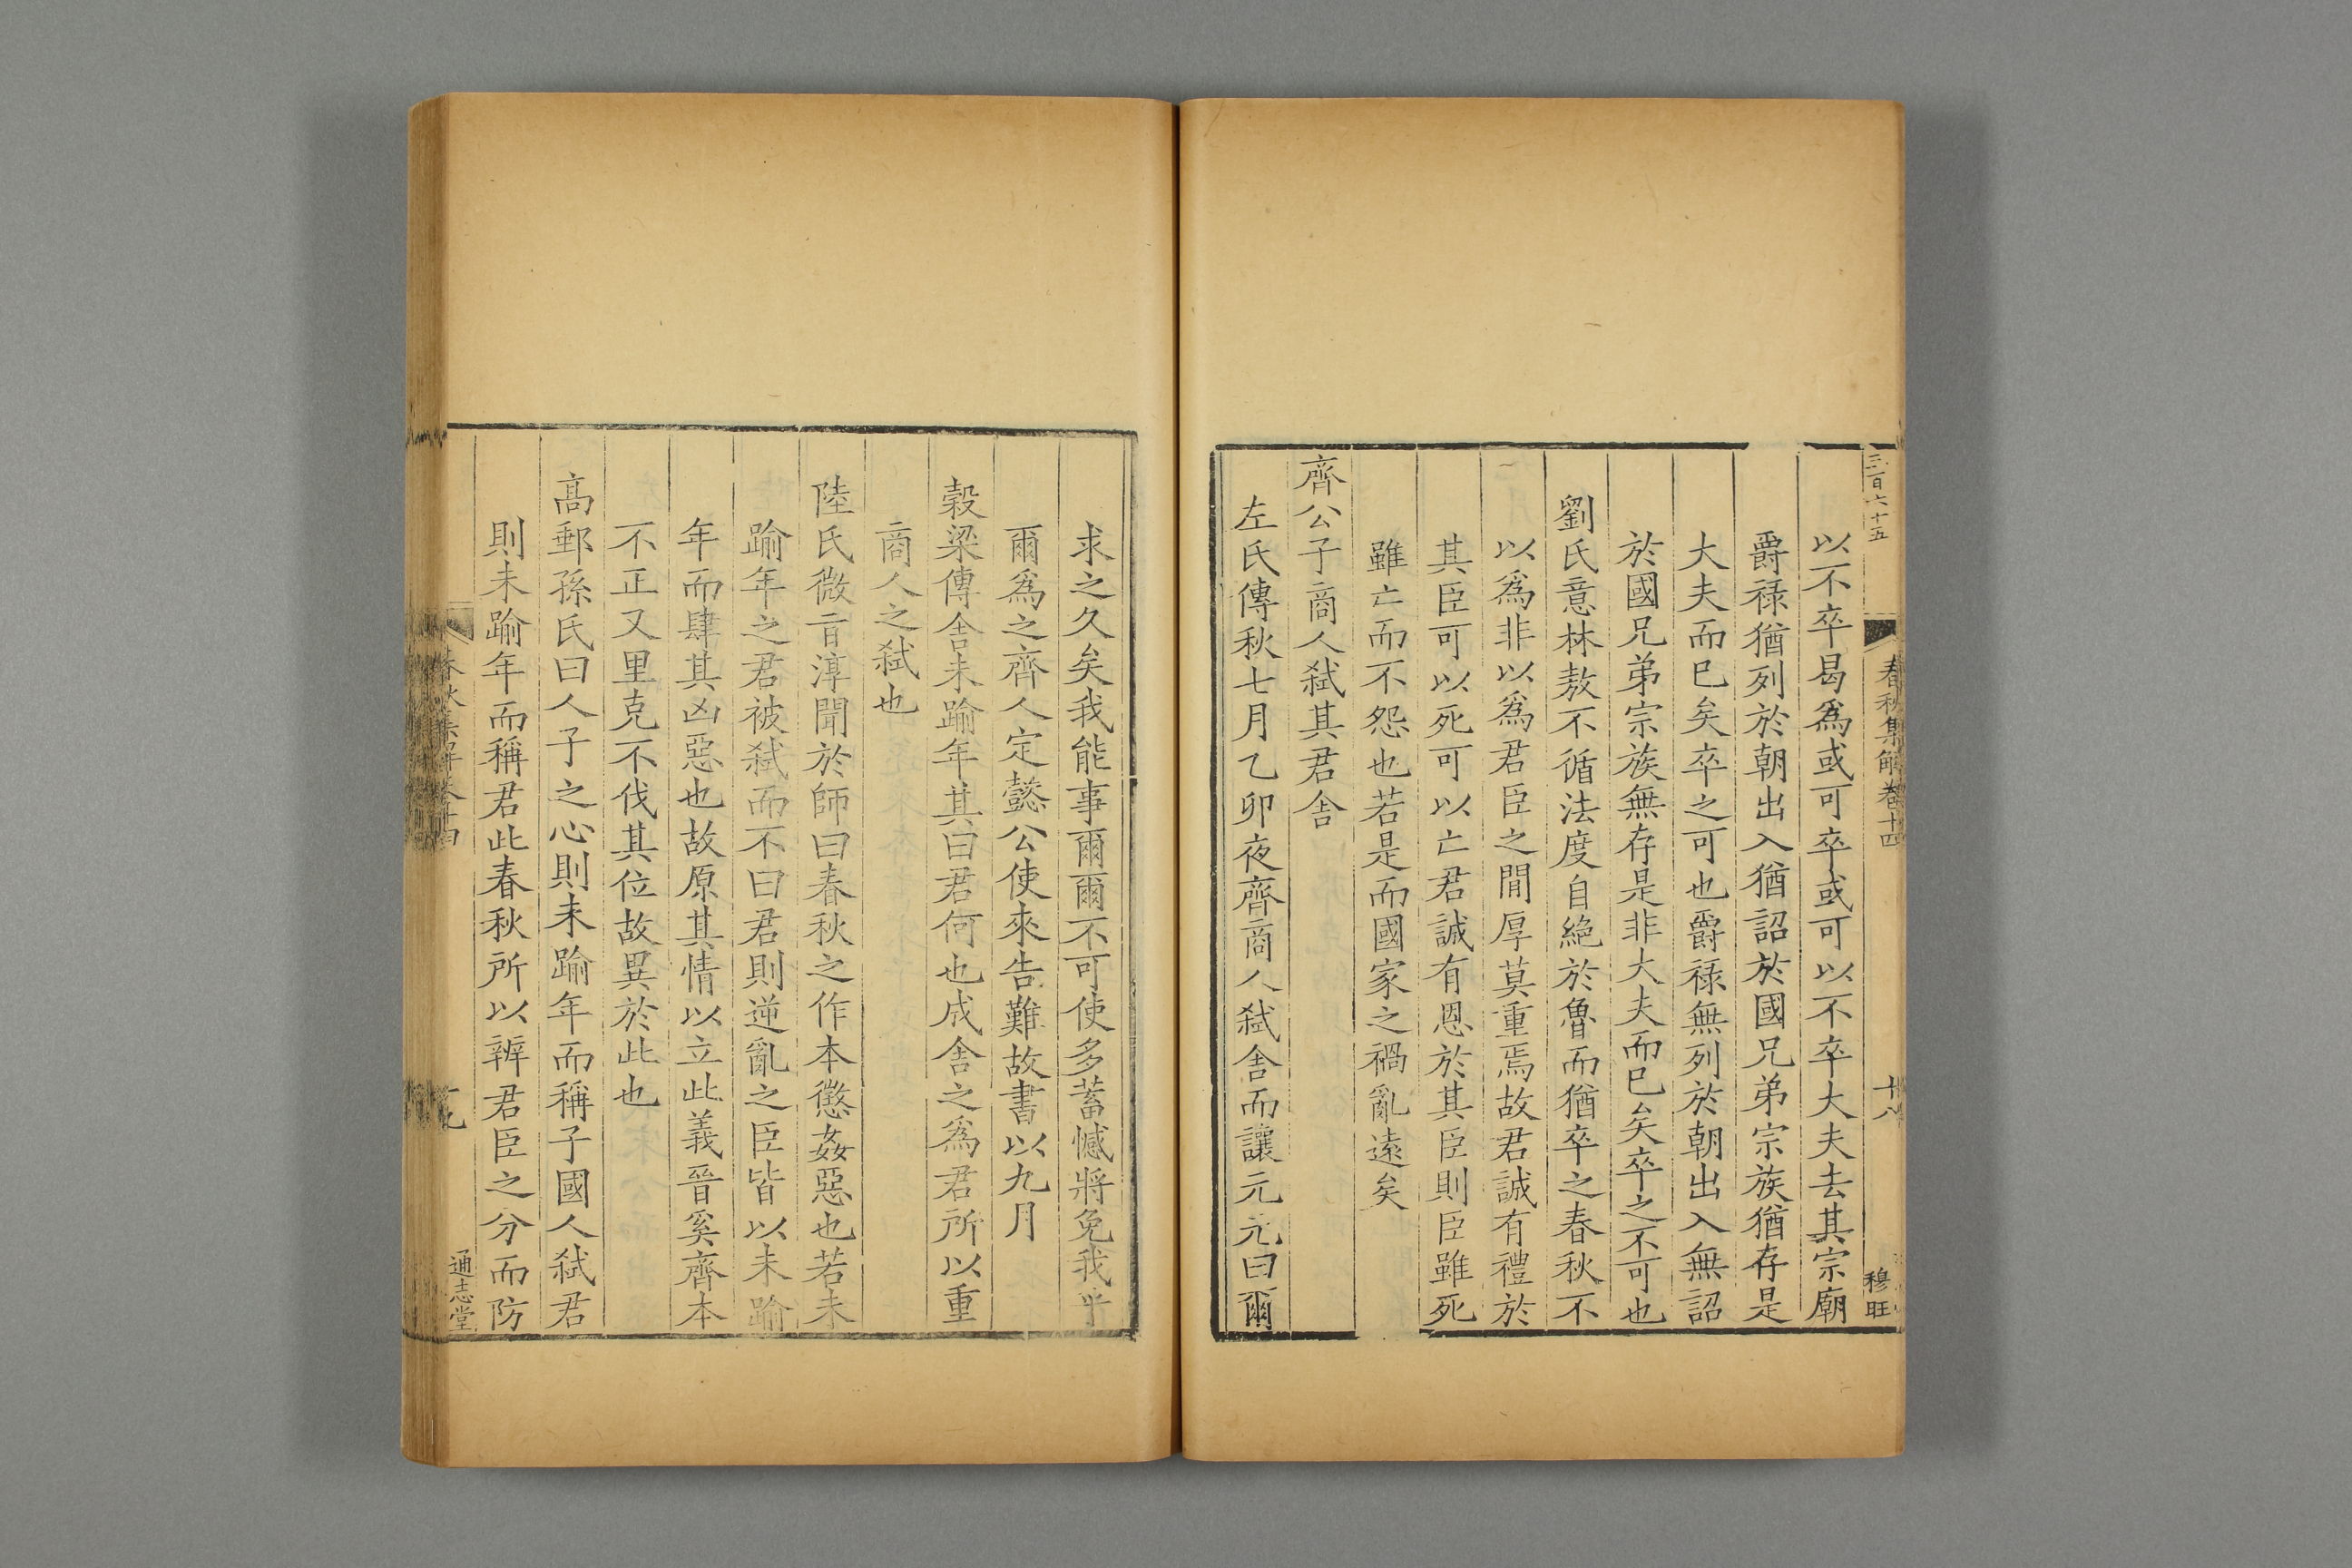 三百六十五
春秋集解卷十四
十八
穆旺
以不卒曷爲或可卒或可以不卒大夫去其宗廟
爵祿猶列於朝出入猶詔於國兄弟宗族猶存是
大夫而巳矣卒之可也爵祿無列於朝出入無詔
於國兄弟宗族無存是非大夫而巳矣卒之不可也
劉氏意林敖不循法度自絶於魯而猶卒之春秋不
以爲非以爲君臣之閒厚莫重焉故君誠有禮於
其臣可以死可以亡君誠有恩於其臣則臣雖死
雖亡而不怨也若是而國家之禍亂遠矣
齊公子商人弑其君舍
左氏傳秋七月乙卯夜齊商人弑舍而讓元元曰爾
求之久矣我能事爾爾不可使多蓄憾將免我乎
爾爲之齊人定懿公使來告難故書以九月
榖梁傳舍未踰年其曰君何也成舍之爲君所以重
商人之弑也
陸氏微旨淳聞於師曰春秋之作本懲姦惡也若未
踰年之君被弑而不曰君則逆亂之臣皆以未踰
年而肆其凶惡也故原其情以立此義晉奚齊本
不正又里克不伐其位故異於此也
髙郵孫氏曰人子之心則未踰年而稱子國人弑君
則未踰年而稱君此春秋所以辨君臣之分而防
春秋集解卷十四
通志堂